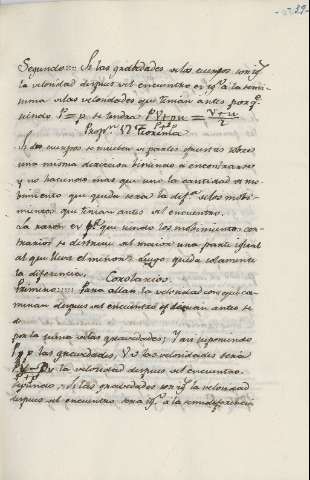 39
Segundo::: Si las gravedades de los cuerpos son ig.s
la velocidad despues del encuentro es ig.l a la semi-
suma de las velocidades que tenian antes porq.e
siendo P=p se tendra PV+pu/P+p = V+u/2
Prop.n 12 Teorema
Si dos cuerpos se mueben de partes opuestas sobre
una misma direccion biniendo a encontrarse
y no haciendo mas que uno la cantidad de mo-
vimiento que queda sera la dif.a de los movi-
mientos que tenian antes del encuentro.
La razon es p.r que siendo los movimientos con-
trarios se destruie del maior una parte igual
al que tiene el minor: Luego queda solamente
la diferencia. Corolarios
Primero:::: Para allar la velocidad con que ca-
minan despues del encuentro
por la suma de las gravedades; Y asi suponiendo
P y p las gravedades, V u las velocidades sera
la velocidad despues del encuentro.
Segundo, Si las gravedades son ig.s la velocidad
despues del encuentro sera ig.l a la semidiferencia